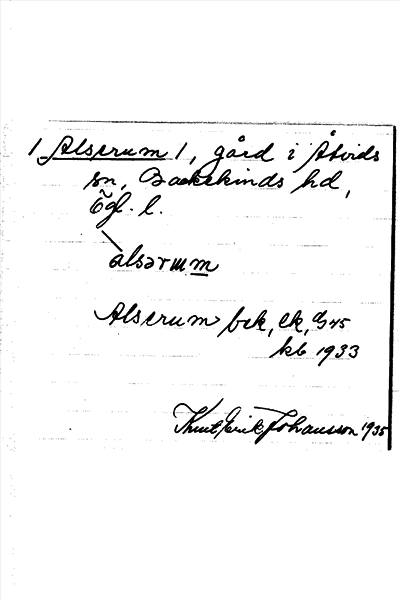 / Alserum /, gård i Åtvids
sn, Bankekinds hd,
Ögl. l.
alsərɯm
Alserum bek, ek, G45
kb 1933
Knut Erik Johansson 1935